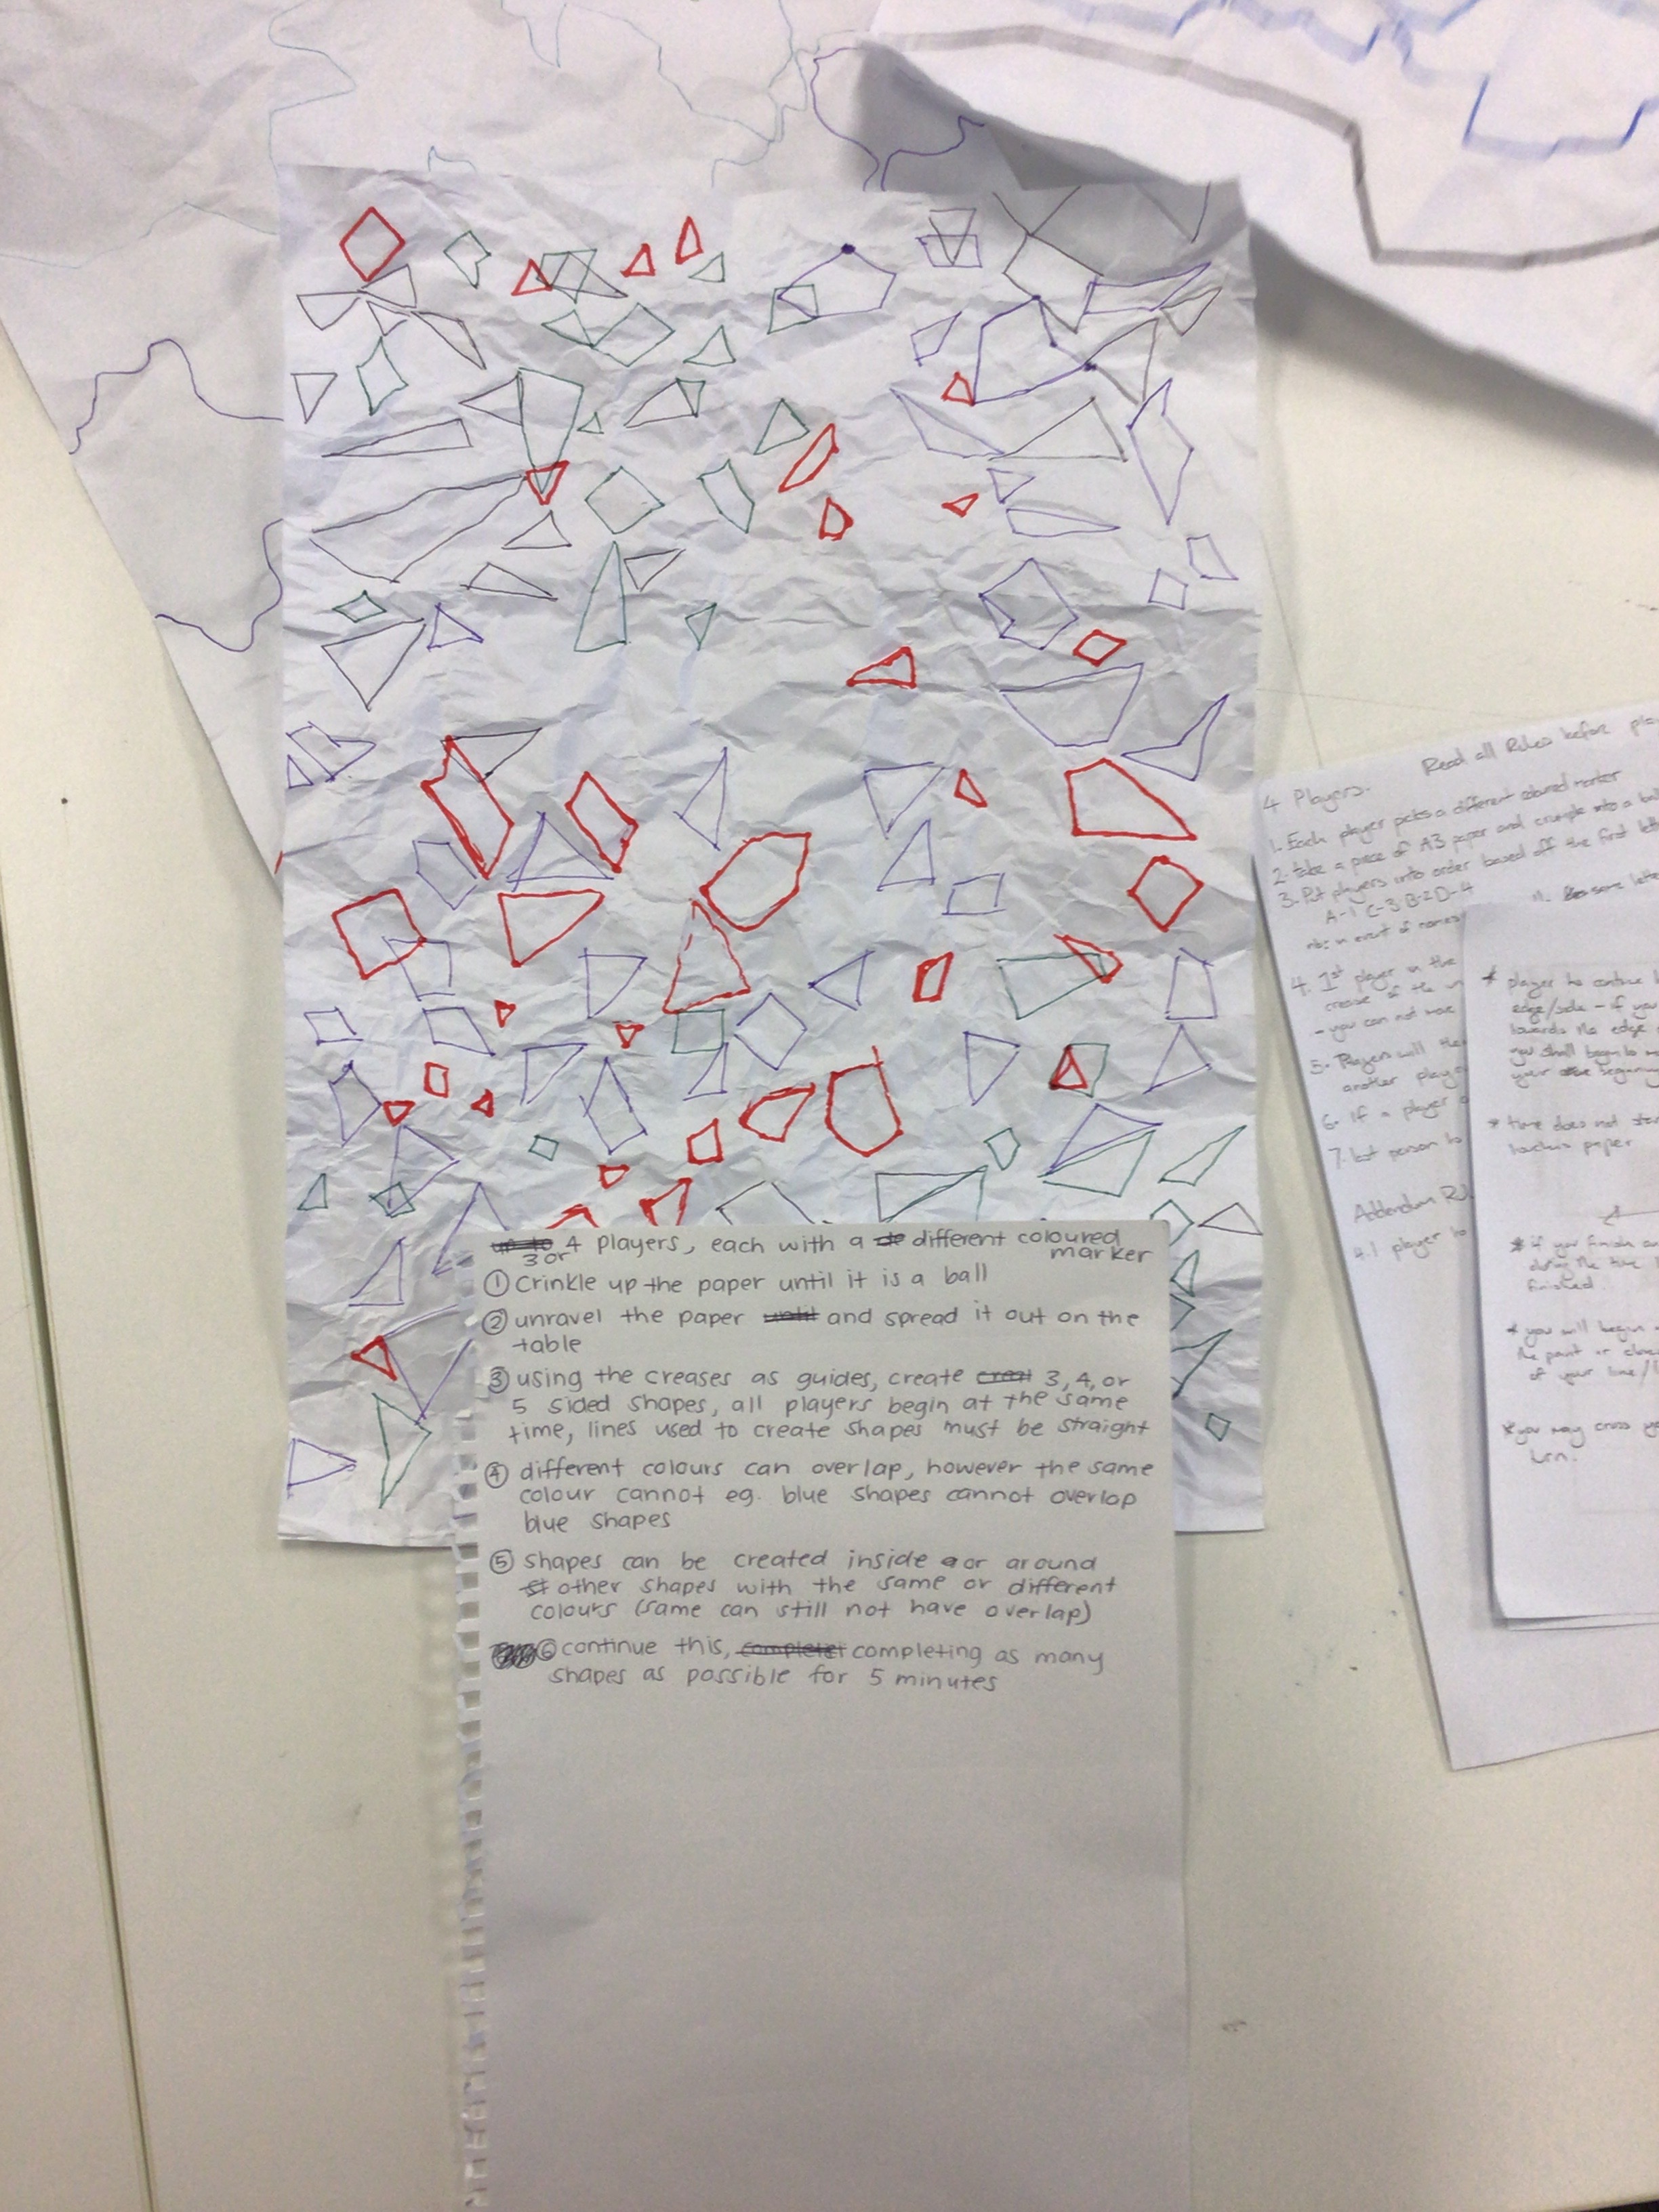 4 players, each with a different coloured
3 or
marker
① Crinkle up the paper until it is a ball
② unravel the paper and spread it out on the
table
③ using the creases as guides, create 3, 4, or
5 sided shapes, all players begin at the same
time, lines used to create shapes must be straight
④ different colours can overlap, however the same
colour cannot eg. blue shapes cannot overlap
blue shapes
⑤ shapes can be created inside or around
other shapes with the same or different
colours (same can still not have overlap)
⑥ continue this, completing as many
shapes as possible for 5 minutes
Read all Rules before
4 Players.
1. Each player picks a different coloured marker
2. take a piece of A3 paper and crumple into a
3. Put players into order based off the first
A-1 C-3 B-2 D-4
nb: in event of
4. 1st player in the
crease of the
- you can not
5. Players will
another
6. If a player
7. last person to
Addendum
4.1 player to
* player to continue
edge/side - if you
towards the edge
you shall begin to
your
* time does not
touches paper
* if you finish
during the time
finished
* you will begin
the point or
of your line/
* you may cross
turn.